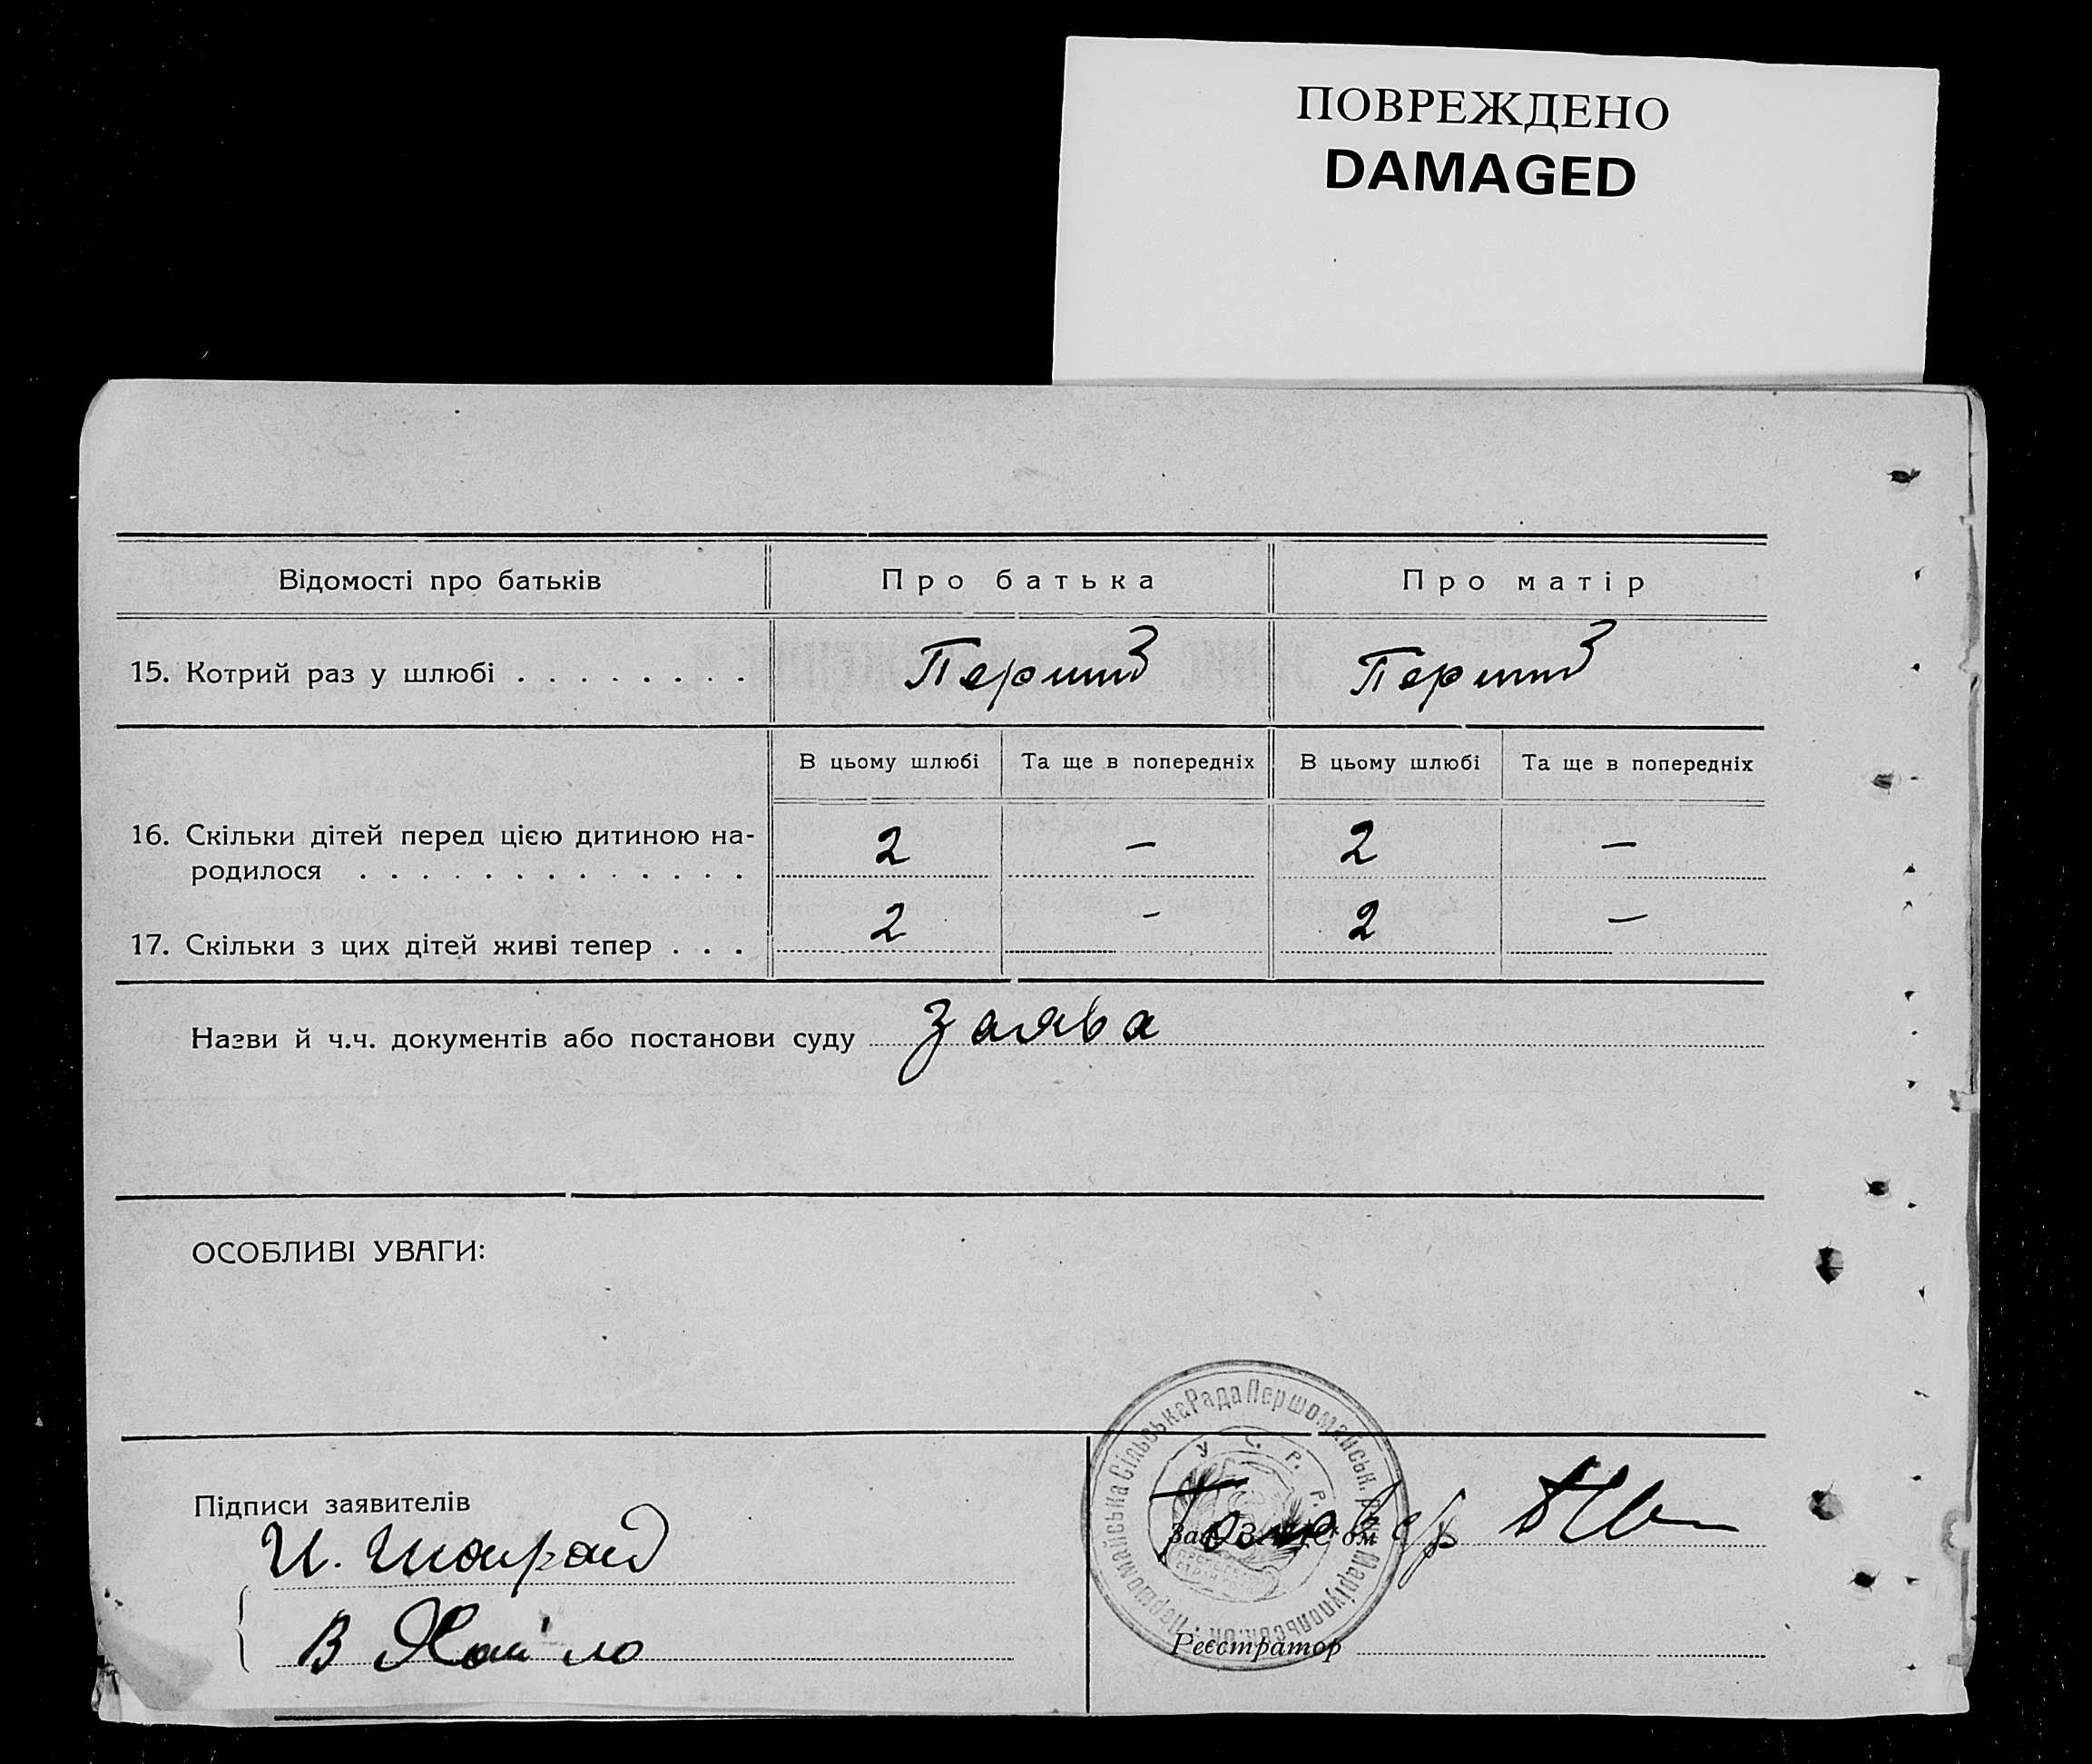 ПОВРЕЖДЕНО
DAMAGED
Відомості про батьків
Про батька
Про матір
15. Котрий раз у шлюбі . . . . . . . .
Перший
Перший
В цьому шлюбі
Та ще в попередніх
В цьому шлюбі
Та ще в попередніх
16. Скільки дітей перед цією дитиною на-
родилося . . . . . . . . . . . . .
2
—
2
—
17. Скільки з цих дітей живі тепер . . .
2
-
2
—
Назви й ч.ч. документів або постанови суду
Заява
ОСОБЛИВІ УВАГИ:
Першомайська Сільська Рада Першомайськ. р. Маріупольськ. ок.
У. С. Р. Р.
Підписи заявителів
Зав. ЗАГС'ом
Реєстратор